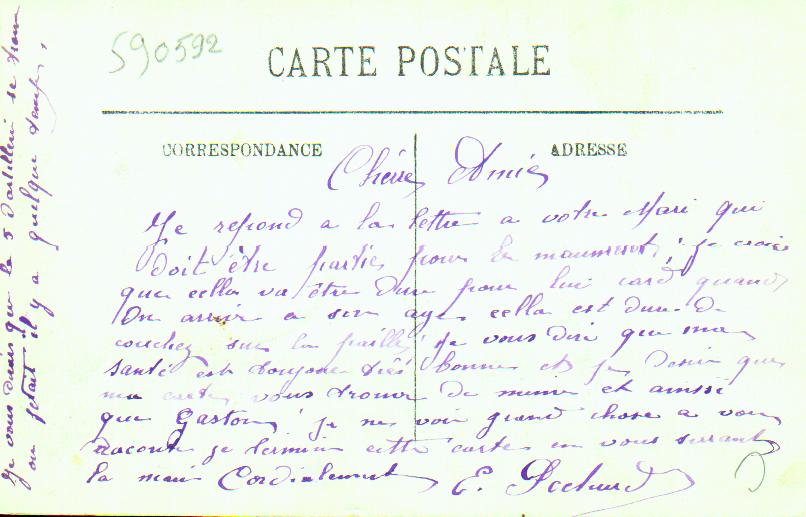 590592
CARTE POSTALE
CORRESPONDANCE
ADRESSE
Chérre Amie
Je repond a la lettre a votre Mari qui
doit être partie pour le moument, je crois
que cella va être dure pour lui card quand
On arrive a son age cella est dure de
couchez sur la paille! je vous dire que ma
santé est toujour très bonne et je desir que
ma carte vous trouve de meme et aussi
que Gaston! je ne voir grand chose a vous
raconte je termine cette carte en vous serrant
la main Cordialement E.
Je vous dirais que le 5 d'artilleri se trouve
ou jetait il y a quelque temps,